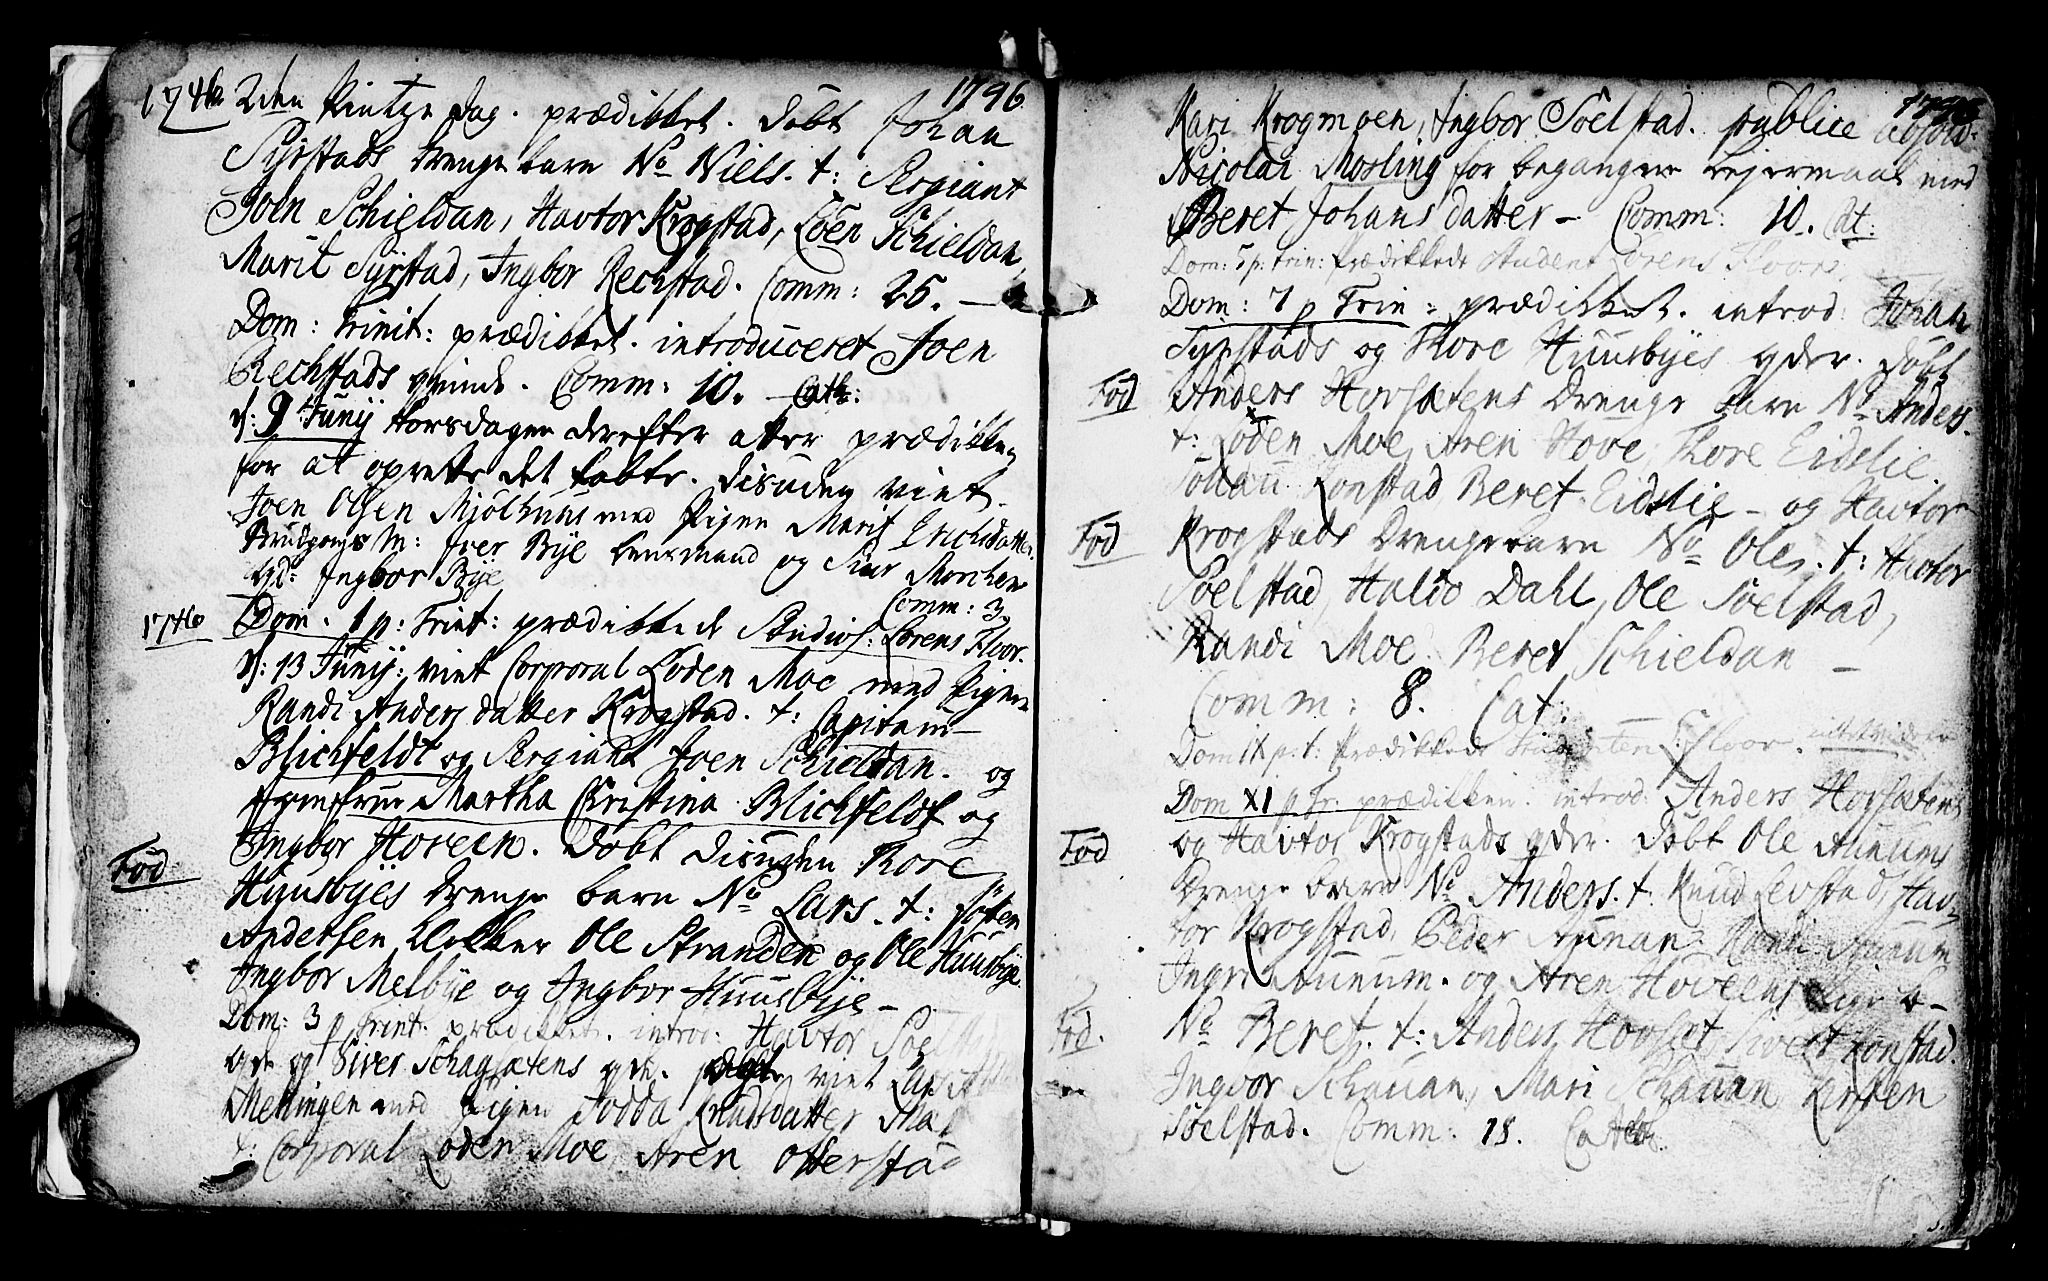 1746 2den Pintze Dag. prædikket. Døbt Johan 1746
Syrstads drenge barn No Niels. t: Sergiant
Joen Schieldan, Havtor Krogstad, Loen Schieldan,
Marit Syrstad, Ingbor Rechstad. Comm: 25. —
Dom: Trinit: prædikket. introduceret Joen
Rechstads qvinde. Comm: 10. — Cath:
d: 9 Junij Torsdagen derefter atter prædikken
for at oprette det tabte. Disuden viet
Joen Olsen Miølhuus med Pigen Marit Erichsdatter
Brudgoms M: Iver Bye Lensmand og Siur Morchen
qd: Ingbor Bye
Comm: 3.
1746 Dom. 1 p: Trint: prædikkede Studios: Lorens Floor.
d: 13 Junij: viet Corporal Loden Moe med Pigen
Randi Anders datter Krogstad. t: Capitain
Blichfeldt og Sergiant Joen Schieldan. og
Jomfrue Martha Christina Blichfeldt og
Ingbor Hoveen. Døbt disuden Tore
Fød Huusbyes drenge barn No Lars. t: Østen
Andersen, Klokker Ole Stranden og Ole Huusbye
Ingbor Melbye og Ingbor Huusbye —
Dom: 3 p Trint. prædikket. introd: Havtor
qde og Siver Schagsetens qde. viet
Mellingen med Pigen Todda Knudsdatter
t: Corporal Loden Moe, Aren Otterstad
1746
Kari Krogmoen, Ingbor Soelstad. publice absolv:
Nicolai Mosling for begangne Lejermaal med
Beret Johans datter — Comm: 10. Cat:
Dom: 5 p: trin: Prædikkede Student Lorens Floor.
Dom: 7 p Trin: prædikket. introd: Johan
Syrstads og Tore Huusbyes qder. Døbt
Fød Anders Hovsetens Drenge barn No Anders.
t: Loden Moe, Aren Hove, Tore Eidslie
Johan Ronstad Beret Eidslie — og Havtor
Fød Krogstads Drengebarn No Ole. t: Havtor
Soelstad, Haldo Dahl, Ole Soelstad,
Randi Moe Beret Schieldan —
Comm: 8. Cat:
Dom p. t: Prædikkede Studenten L: Floor.
Dom XI p Tr. prædikken. introd: Anders Hovsetens
og Havtor Krogstads qder. Døbt Ole Aunums
Fød Drenge barn No Anders. t. Knud Levstad, Hav-
tor Krogstad, Peder Aunan Randi Aunum
Ingri Aunum. og Aren Hoveens Pige b—
Fød. No Beret. t: Anders Hovset, Sivert Ronstad
Ingbor Schauan, Mari Schauan Kirsten
Soelstad. Comm: 18. Catec.